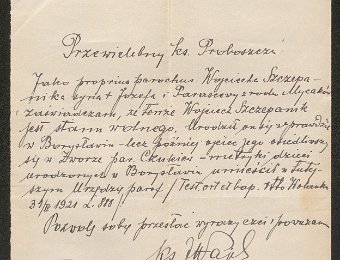 Przewielebny ks. Proboszcz!
Jako proprius parochus Wojciecha Szczepa-
nika syna + Józefa i Parascevy z rodu Mycaków
zaświadczam, że tenże Wojciech Szczepanik
jest stanu wolnego. Urodził on się wprawdzie
w Borysławiu – lecz później ojciec jego osiedliwszy
się w Dworze pn. – metryki dzieci
urodzonych w Borysławiu umieścił w tutej-
szym Urzędzie paraf / Test. ort. et bap. tt Wolanka
31/III 1921 L. 888/
Pozwolę sobie przesłać wyrazy czci i poważania
ks.